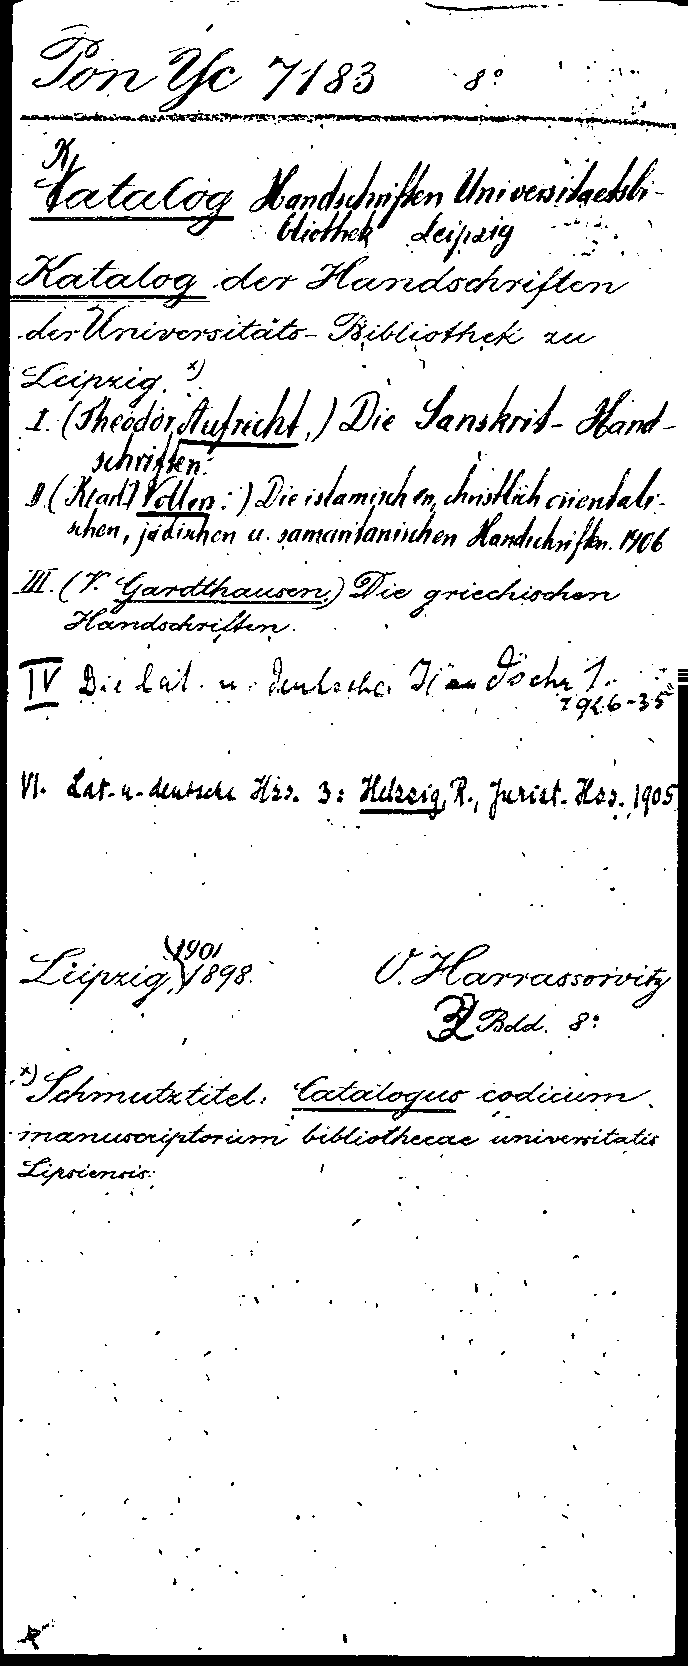 Pon Yc 7183 8°
K
Catalog Handschriften Universitaetsbi-
bliothek Leipzig
Katalog der Handschriften
der Universitäts-Bibliothek zu
Leipzig. x)
I. (Theodor Aufrecht,) Die Sanskrit-Hand-
schriften.
II. (K(arl) Vollers:) Die islamischen, christlich orientali-
schen, jüdischen u. samaritanischen Handschriften. 1906
III. (V. Gardthausen.) Die griechischen
Handschriften.
IV Die lat. u. deutsche Handschr 1.
1926-35
VI. Lat. u. deutsche Hss. 3: Helssig, R., Jurist. Hss. 1905
1901
Leipzig, 1898. O. Harrassowitz
3 Bdd. 8°
x) Schmutztitel: Catalogus codicum
manuscriptorum bibliothecae universitatis
Lipsiensis.